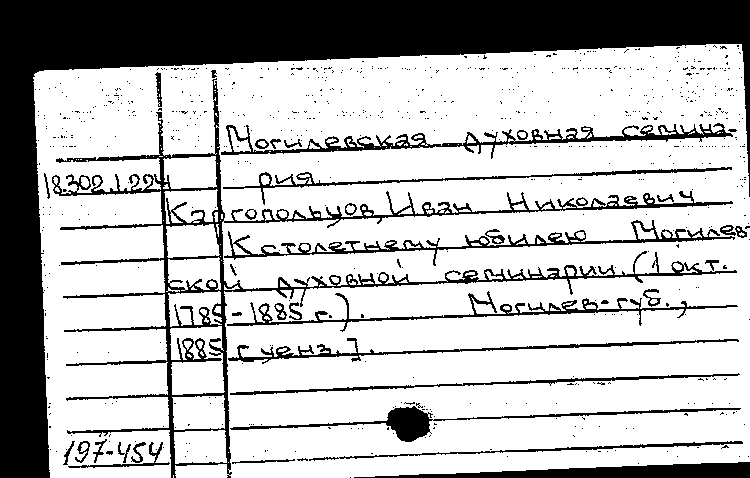 Могилевская духовная семина-
18.302.1.224 рия
Каргопольцов, Иван Николаевич
К столетнему юбилею Могилев-
ской духовной семинарии. (1 окт.
1785-1885 г.). Могилев-губ.,
1885 [ценз.].
197-454